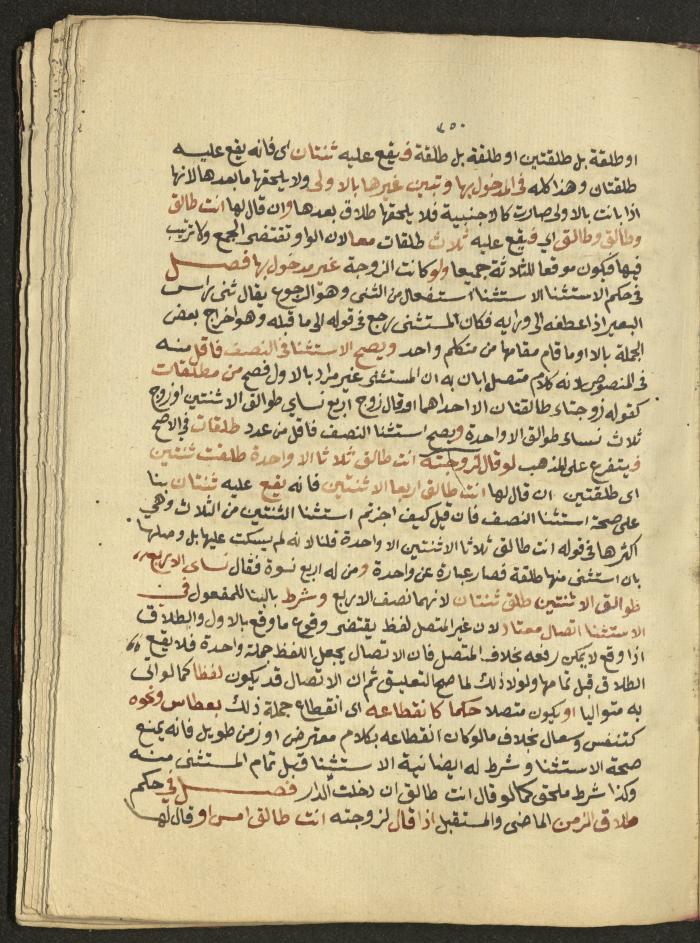 ٤٥٠
او طلقة بل طلقتين او طلقة بل طلقة فيقع عليه ثنتان اى فانه يقع عليه
طلقتان وهذا كله فى المدخول بها وتبين غيرها بالاولى ولا يلحقها ما بعدها لانها
اذا بانت بالاولى صارت كالاجنبية فلا يلحقها طلاق بعدها وان قال لها انت طالق
وطالق وطالق اى فيقع عليه ثلاث طلقات معا لان الواو تقتضى الجمع ولا ترتيب
فيها فكون موقعا للثلاثة جميعا ولو كانت الزوجة غير مدخول بها فصل
فى حكم الاستثنا الاستثنا استفعال من الثنى وهو الرجوع يقال ثنى راس
البعير اذا عطفه الى ورايه فكان المستثنى رجع فى قوله الى ما قبله وهو اخراج بعض
الجملة بالا او ما قام مقامها من متكلم واحد ويصح الاستثنا فى النصف فاقل منه
فى المنصوص لانه كلام متصل ابان به ان المستثنى غير مراد بالاول فصح من مطلقات
كقوله زوجتاى طالقتان الا احداهما او قال زوج اربع نساى طوالق الا ثنتين او زوج
ثلاث نساى طوالق الا واحدة ويصح استثنا النصف فاقل من عدد طلقات فى الاصح
فيتفرع على المذهب لو قال لزوجته انت طالق ثلاثا الا واحدة طلقت ثنتين
اى طلقتين ان قال لها انت طالق اربعا الا ثنتين فانه يقع عليه ثنتان بنا
على صحة استثنا النصف فان قيل كيف اجزتم استثنا الثنتين من الثلاث وهى
اكثرها فى قوله انت طالق ثلاثا الا ثنتين الا واحدة قلنا لانه لم يسكت عليها بل وصلها
بان استثنى منها طلقة فصار عبارة عن واحدة ومن له اربع نسوة فقال نساى الاربع
طوالق الا ثنتين طلق ثنتان لانهما نصف الاربع وشرط بالبنا للمفعول فى
الاستثنا اتصال معتاد لان غير المتصل لفظ يقتضى وقوع ما وقع بالاول والطلاق
اذا وقع لا يمكن رفعه بخلاف المتصل فان الاتصال يجعل اللفظ جملة واحدة فلا يقع
الطلاق قبل تمامها ولولا ذلك لما صح التعليق ثم ان الاتصال قد يكون لفظا كما لو اتى
به متواليا او يكون متصلا حكما كانقطاعه اى انقطاع جملة ذلك بعطاس ونحوه
كتنفس وسعال بخلاف ما لو كان انقطاعه بكلام معترض او زمن طويل فانه يمنع
صحة الاستثنا وشرط له ايضا نية الاستثنا قبل تمام المستثنى منه
وكذا شرط ملحق كما لو قال انت طالق ان دخلت الدار فصل فى حكم
طلاق الزمن الماضى والمستقبل اذا قال لزوجته انت طالق امس او قال لها